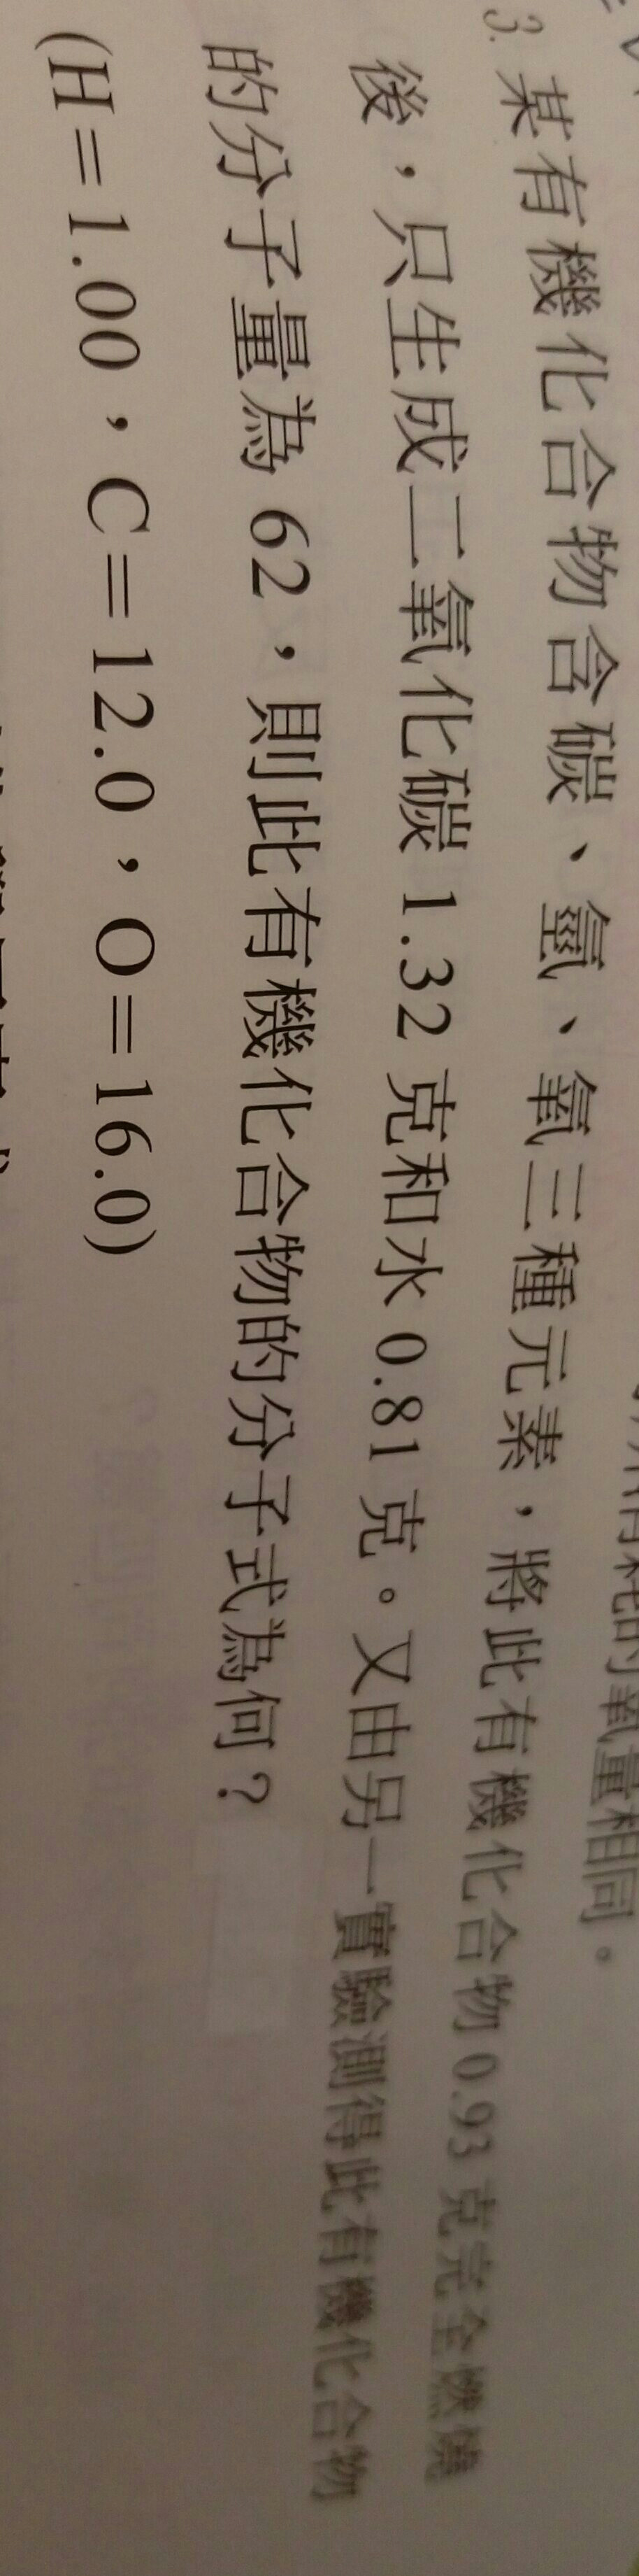 的氧量相同。
3. 某有機化合物含碳、氫、氧三種元素，將此有機化合物 0.93 克完全燃燒
後，只生成二氧化碳 1.32 克和水 0.81 克。又由另一實驗測得此有機化合物
的分子量為 62，則此有機化合物的分子式為何？
(H＝1.00，C＝12.0，O＝16.0)